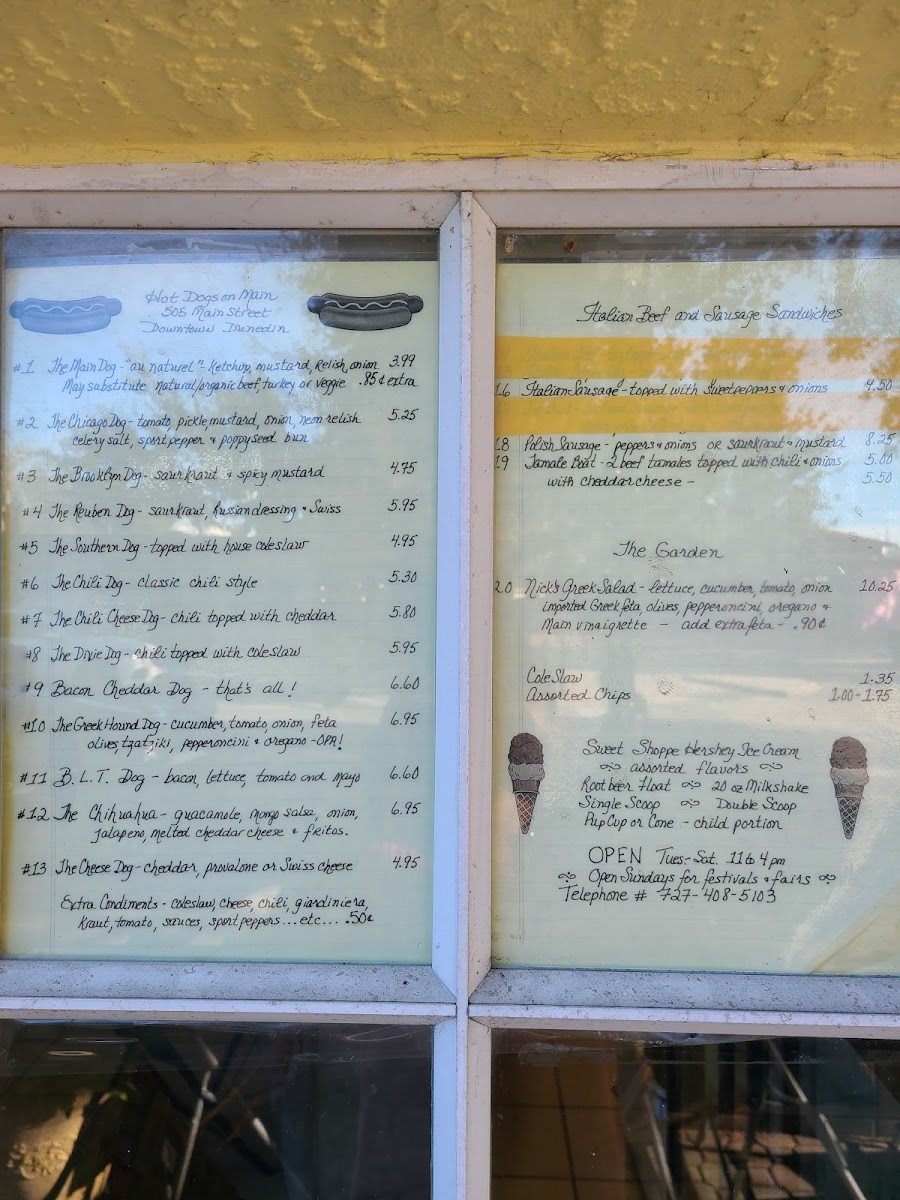 Hot Dogs on Main
505 Main Street
Downtown Dunedin
#1 The Main Dog - "au naturel" - ketchup, mustard, relish, onion 3.99
May substitute natural/organic beef, turkey or veggie .85¢ extra
#2 The Chicago Dog - tomato, pickle, mustard, onion, neon relish 5.25
celery salt, sport pepper & poppyseed bun
#3 The Brooklyn Dog - saurkraut & spicy mustard 4.75
#4 The Reuben Dog - saurkraut, Russian dressing & Swiss 5.95
#5 The Southern Dog - topped with house coleslaw 4.95
#6 The Chili Dog - classic chili style 5.30
#7 The Chili Cheese Dog - chili topped with cheddar 5.80
#8 The Dixie Dog - chili topped with coleslaw 5.95
#9 Bacon Cheddar Dog - that's all! 6.60
#10 The Greek Hound Dog - cucumber, tomato, onion, feta 6.95
olives, tzatziki, pepperoncini & oregano - OPA!
#11 B.L.T. Dog - bacon, lettuce, tomato and mayo 6.60
#12 The Chihuahua - guacamole, mango salsa, onion, 6.95
jalapeno, melted cheddar cheese & fritos.
#13 The Cheese Dog - cheddar, provalone or Swiss cheese 4.95
Extra Condiments - coleslaw, cheese, chili, giardiniera,
kraut, tomato, sauces, sport peppers...etc... .50¢
Italian Beef and Sausage Sandwiches
16 Italian Sausage - topped with sweet peppers & onions 9.50
18 Polish Sausage - peppers & onions or saurkraut & mustard 8.25
19 Tamale Boat - 2 beef tamales topped with chili & onions 5.00
with cheddar cheese - 5.50
The Garden
20 Nick's Greek Salad - lettuce, cucumber, tomato, onion 10.25
imported Greek feta, olives, pepperoncini, oregano &
Main vinaigrette - add extra feta - .90¢
Cole Slaw 1.35
Assorted Chips 1.00-1.75
Sweet Shoppe Hershey Ice Cream
assorted flavors
Root beer Float 20 oz Milkshake
Single Scoop Double Scoop
Pup Cup or Cone - child portion
OPEN Tues-Sat. 11 to 4 pm
Open Sundays for festivals & fairs
Telephone # 727-408-5103